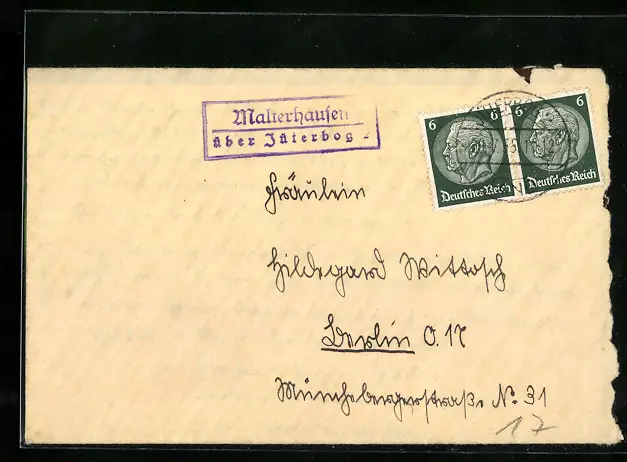 Malterhausen
über Jüterbog
6 6
Deutsches Reich
6 6
Deutsches Reich
JÜTERBOG
Fräulein
Hildegard Wittosch
Berlin O.17
Münchebergerstraße No. 31
17